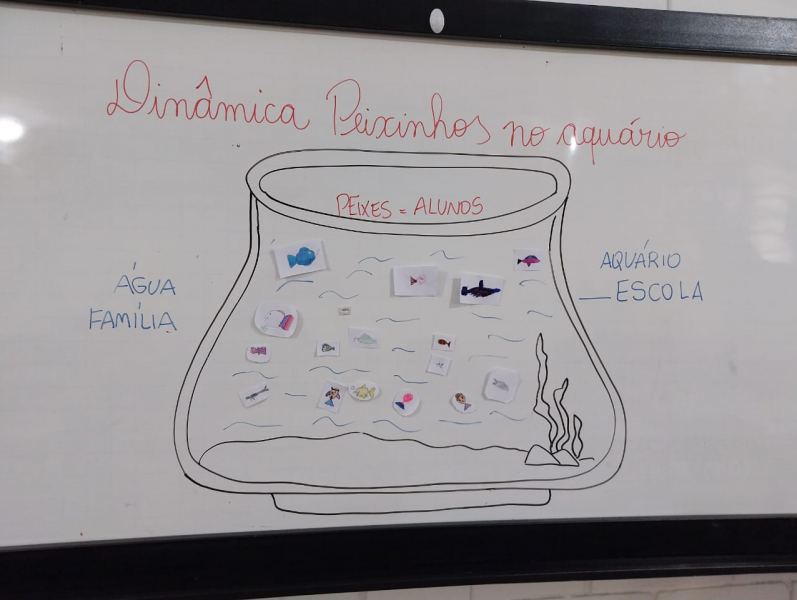 Dinâmica Peixinhos no aquário
PEIXES = ALUNOS
ÁGUA
FAMÍLIA
AQUÁRIO
ESCOLA